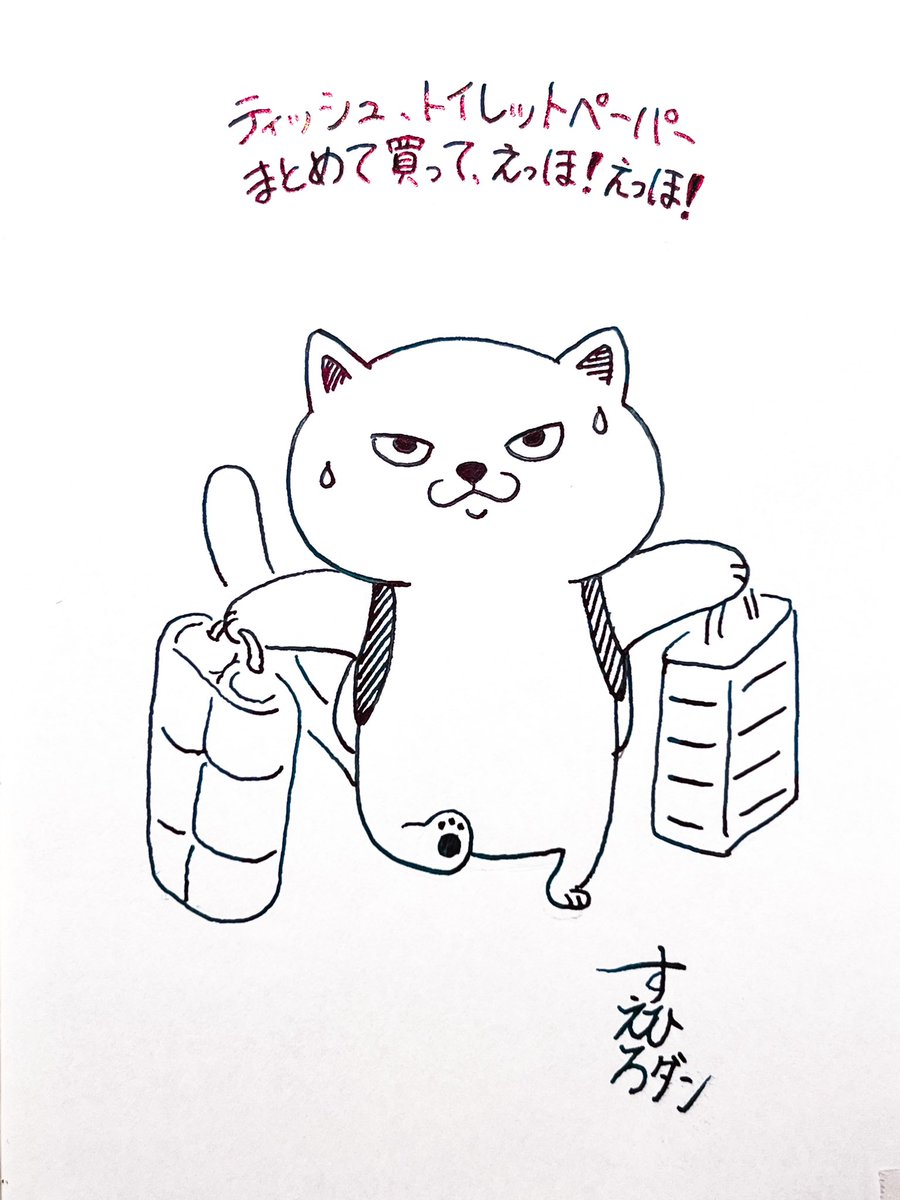 ティッシュ、トイレットペーパー
まとめて買って、えっほ!えっほ!
すえひろダン